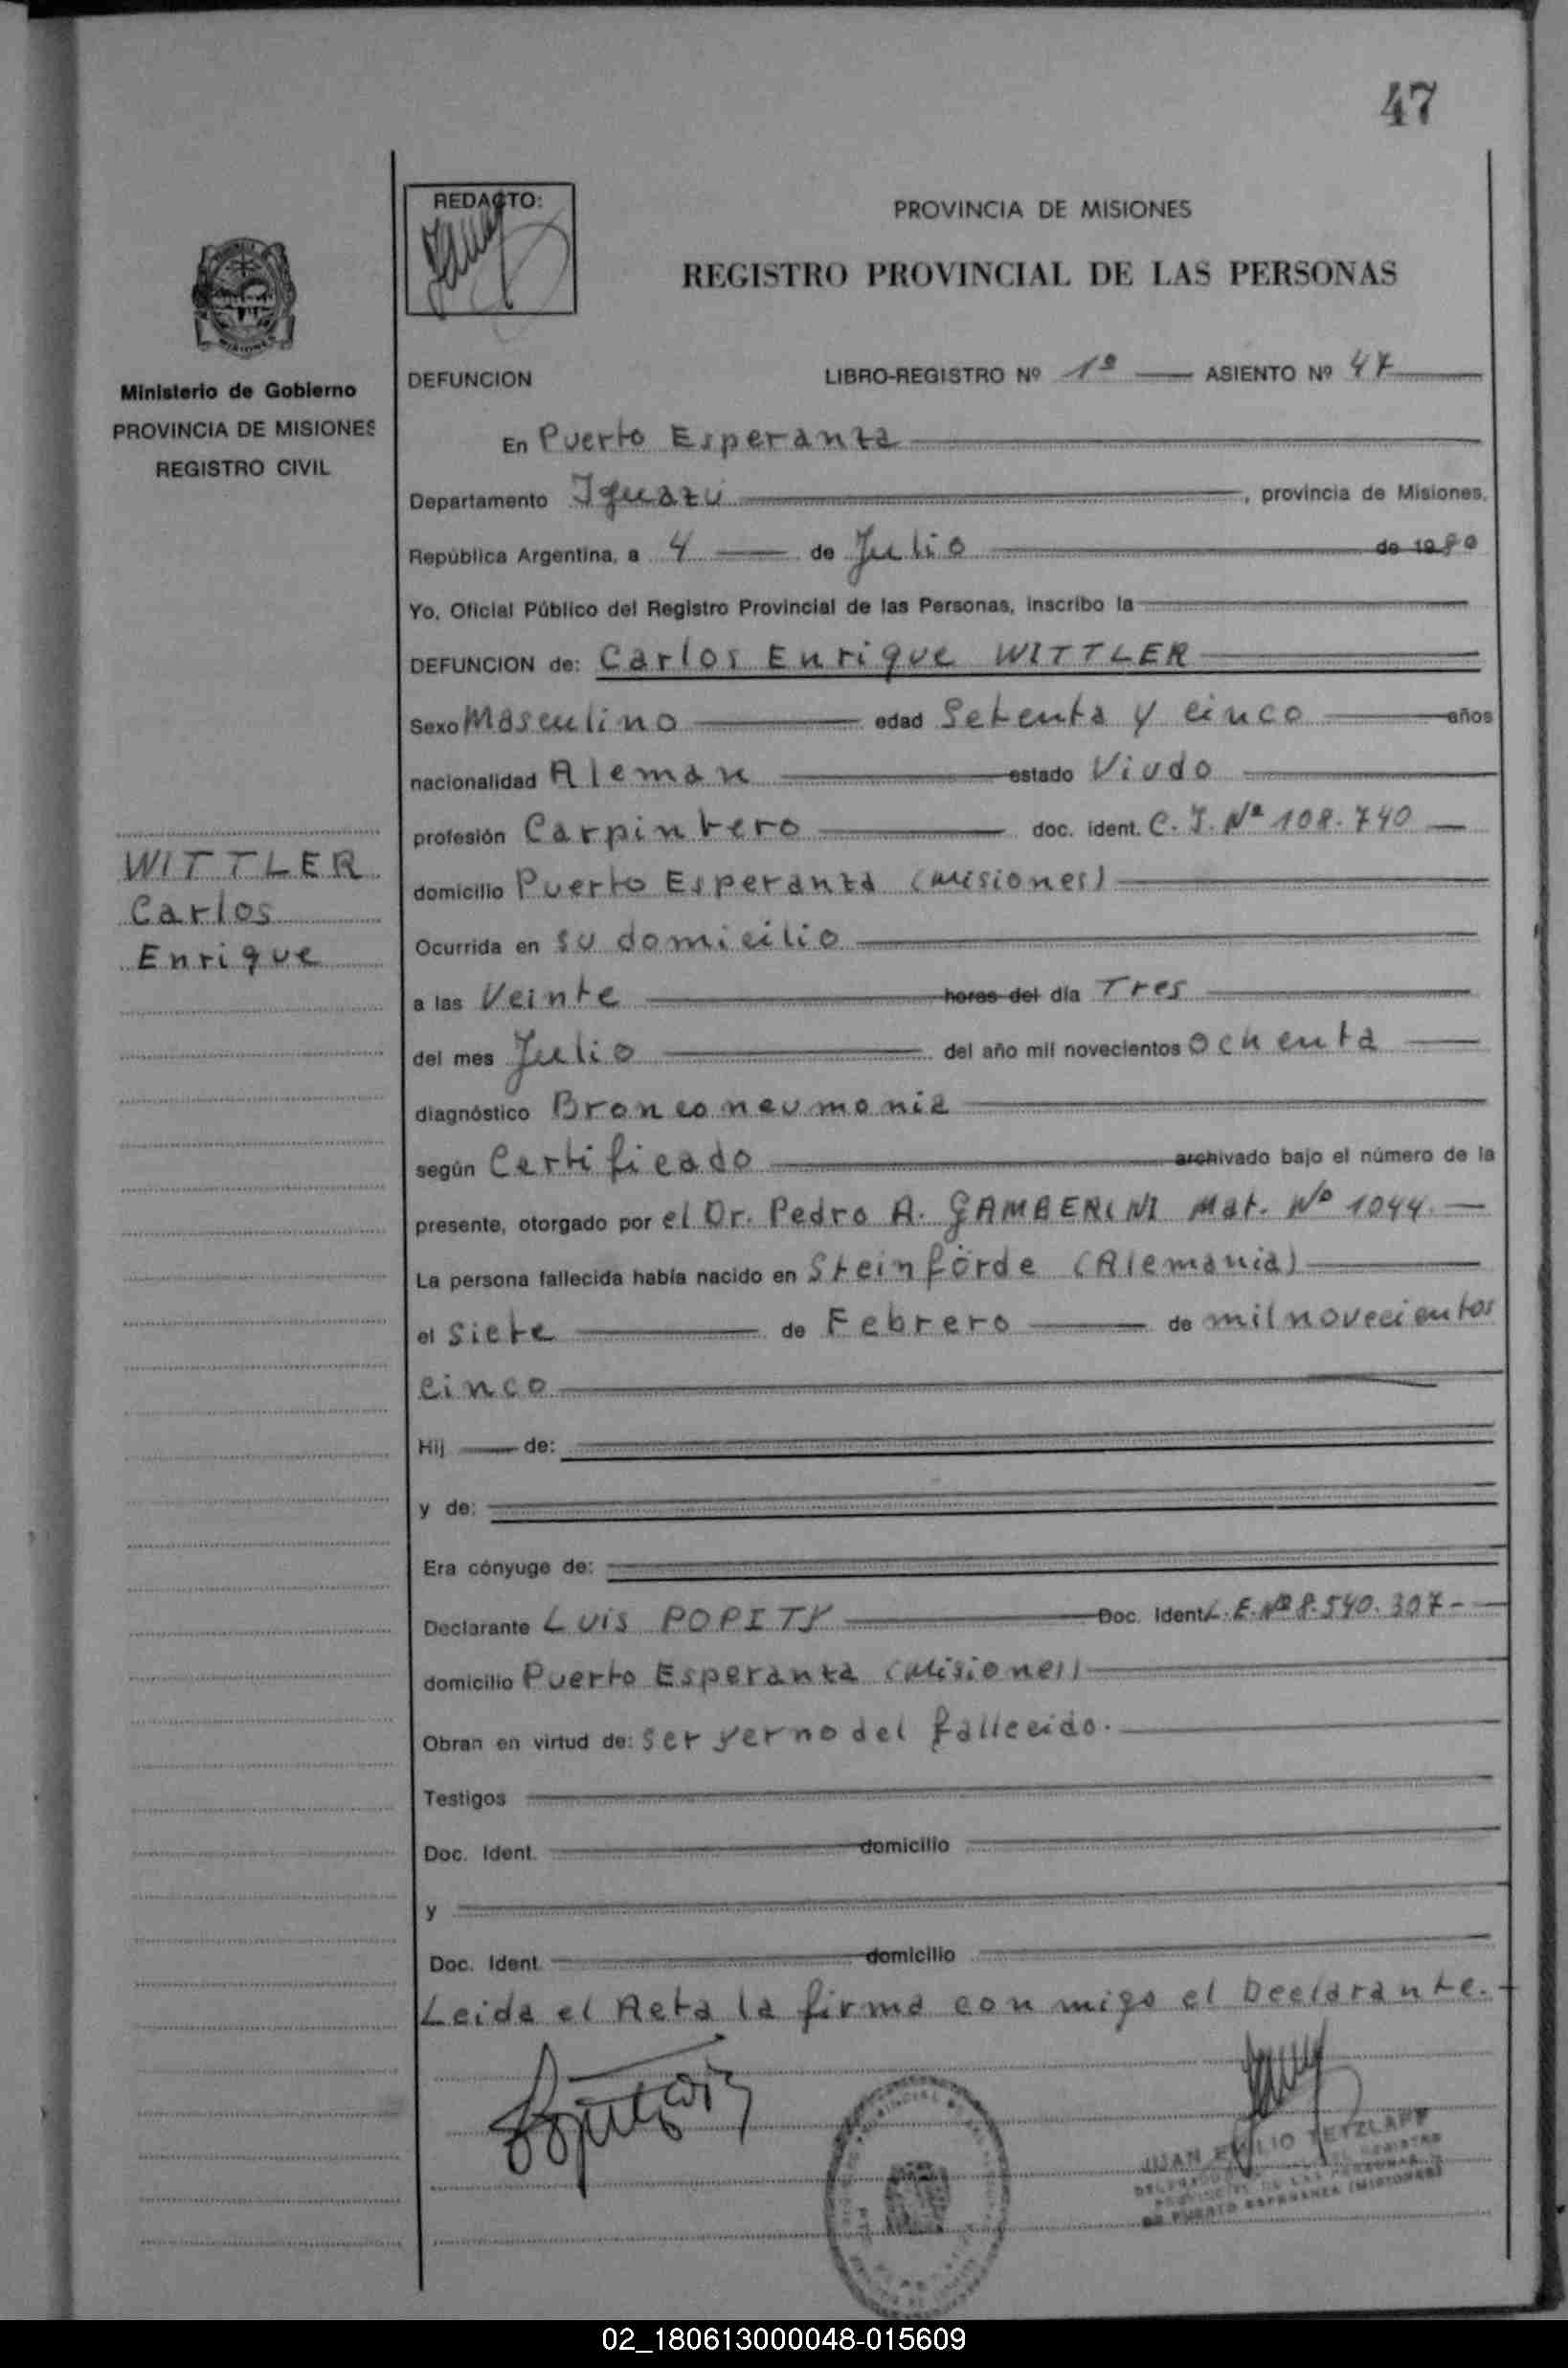 47
REDACTO:
PROVINCIA DE MISIONES
REGISTRO PROVINCIAL DE LAS PERSONAS
MISIONES
Ministerio de Gobierno
PROVINCIA DE MISIONES
REGISTRO CIVIL
DEFUNCION LIBRO-REGISTRO Nº 1º ASIENTO Nº 47
En Puerto Esperanza
Departamento Iguazú, provincia de Misiones,
República Argentina, a 4 de Julio de 1980
Yo, Oficial Público del Registro Provincial de las Personas, inscribo la
DEFUNCION de: Carlos Enrique WITTLER
Sexo Masculino edad Setenta y cinco años
nacionalidad Aleman estado Viudo
profesión Carpintero doc. ident. C. I. Nº 108.740
WITTLER
Carlos
Enrique
domicilio Puerto Esperanza (Misiones)
Ocurrida en su domicilio
a las Veinte horas del día Tres
del mes Julio del año mil novecientos ochenta
diagnóstico Bronconeumonia
según Certificado archivado bajo el número de la
presente, otorgado por el Dr. Pedro A. GAMBERINI Mat. Nº 1044.
La persona fallecida había nacido en Steinförde (Alemania)
el Siete de Febrero de mil novecientos
cinco
Hij de:
y de:
Era cónyuge de:
Declarante Luis POPITY Doc. Ident. L.E. Nº 8.540.307-
domicilio Puerto Esperanza (Misiones)
Obran en virtud de: ser yerno del fallecido.
Testigos
Doc. Ident. domicilio
y
Doc. Ident. domicilio
Leida el Acta la firma conmigo el Declarante.
JUAN EMILIO TETZLAFF
PROVINCIAL DE LAS PERSONAS
DE PUERTO ESPERANZA (MISIONES)
02_180613000048-015609